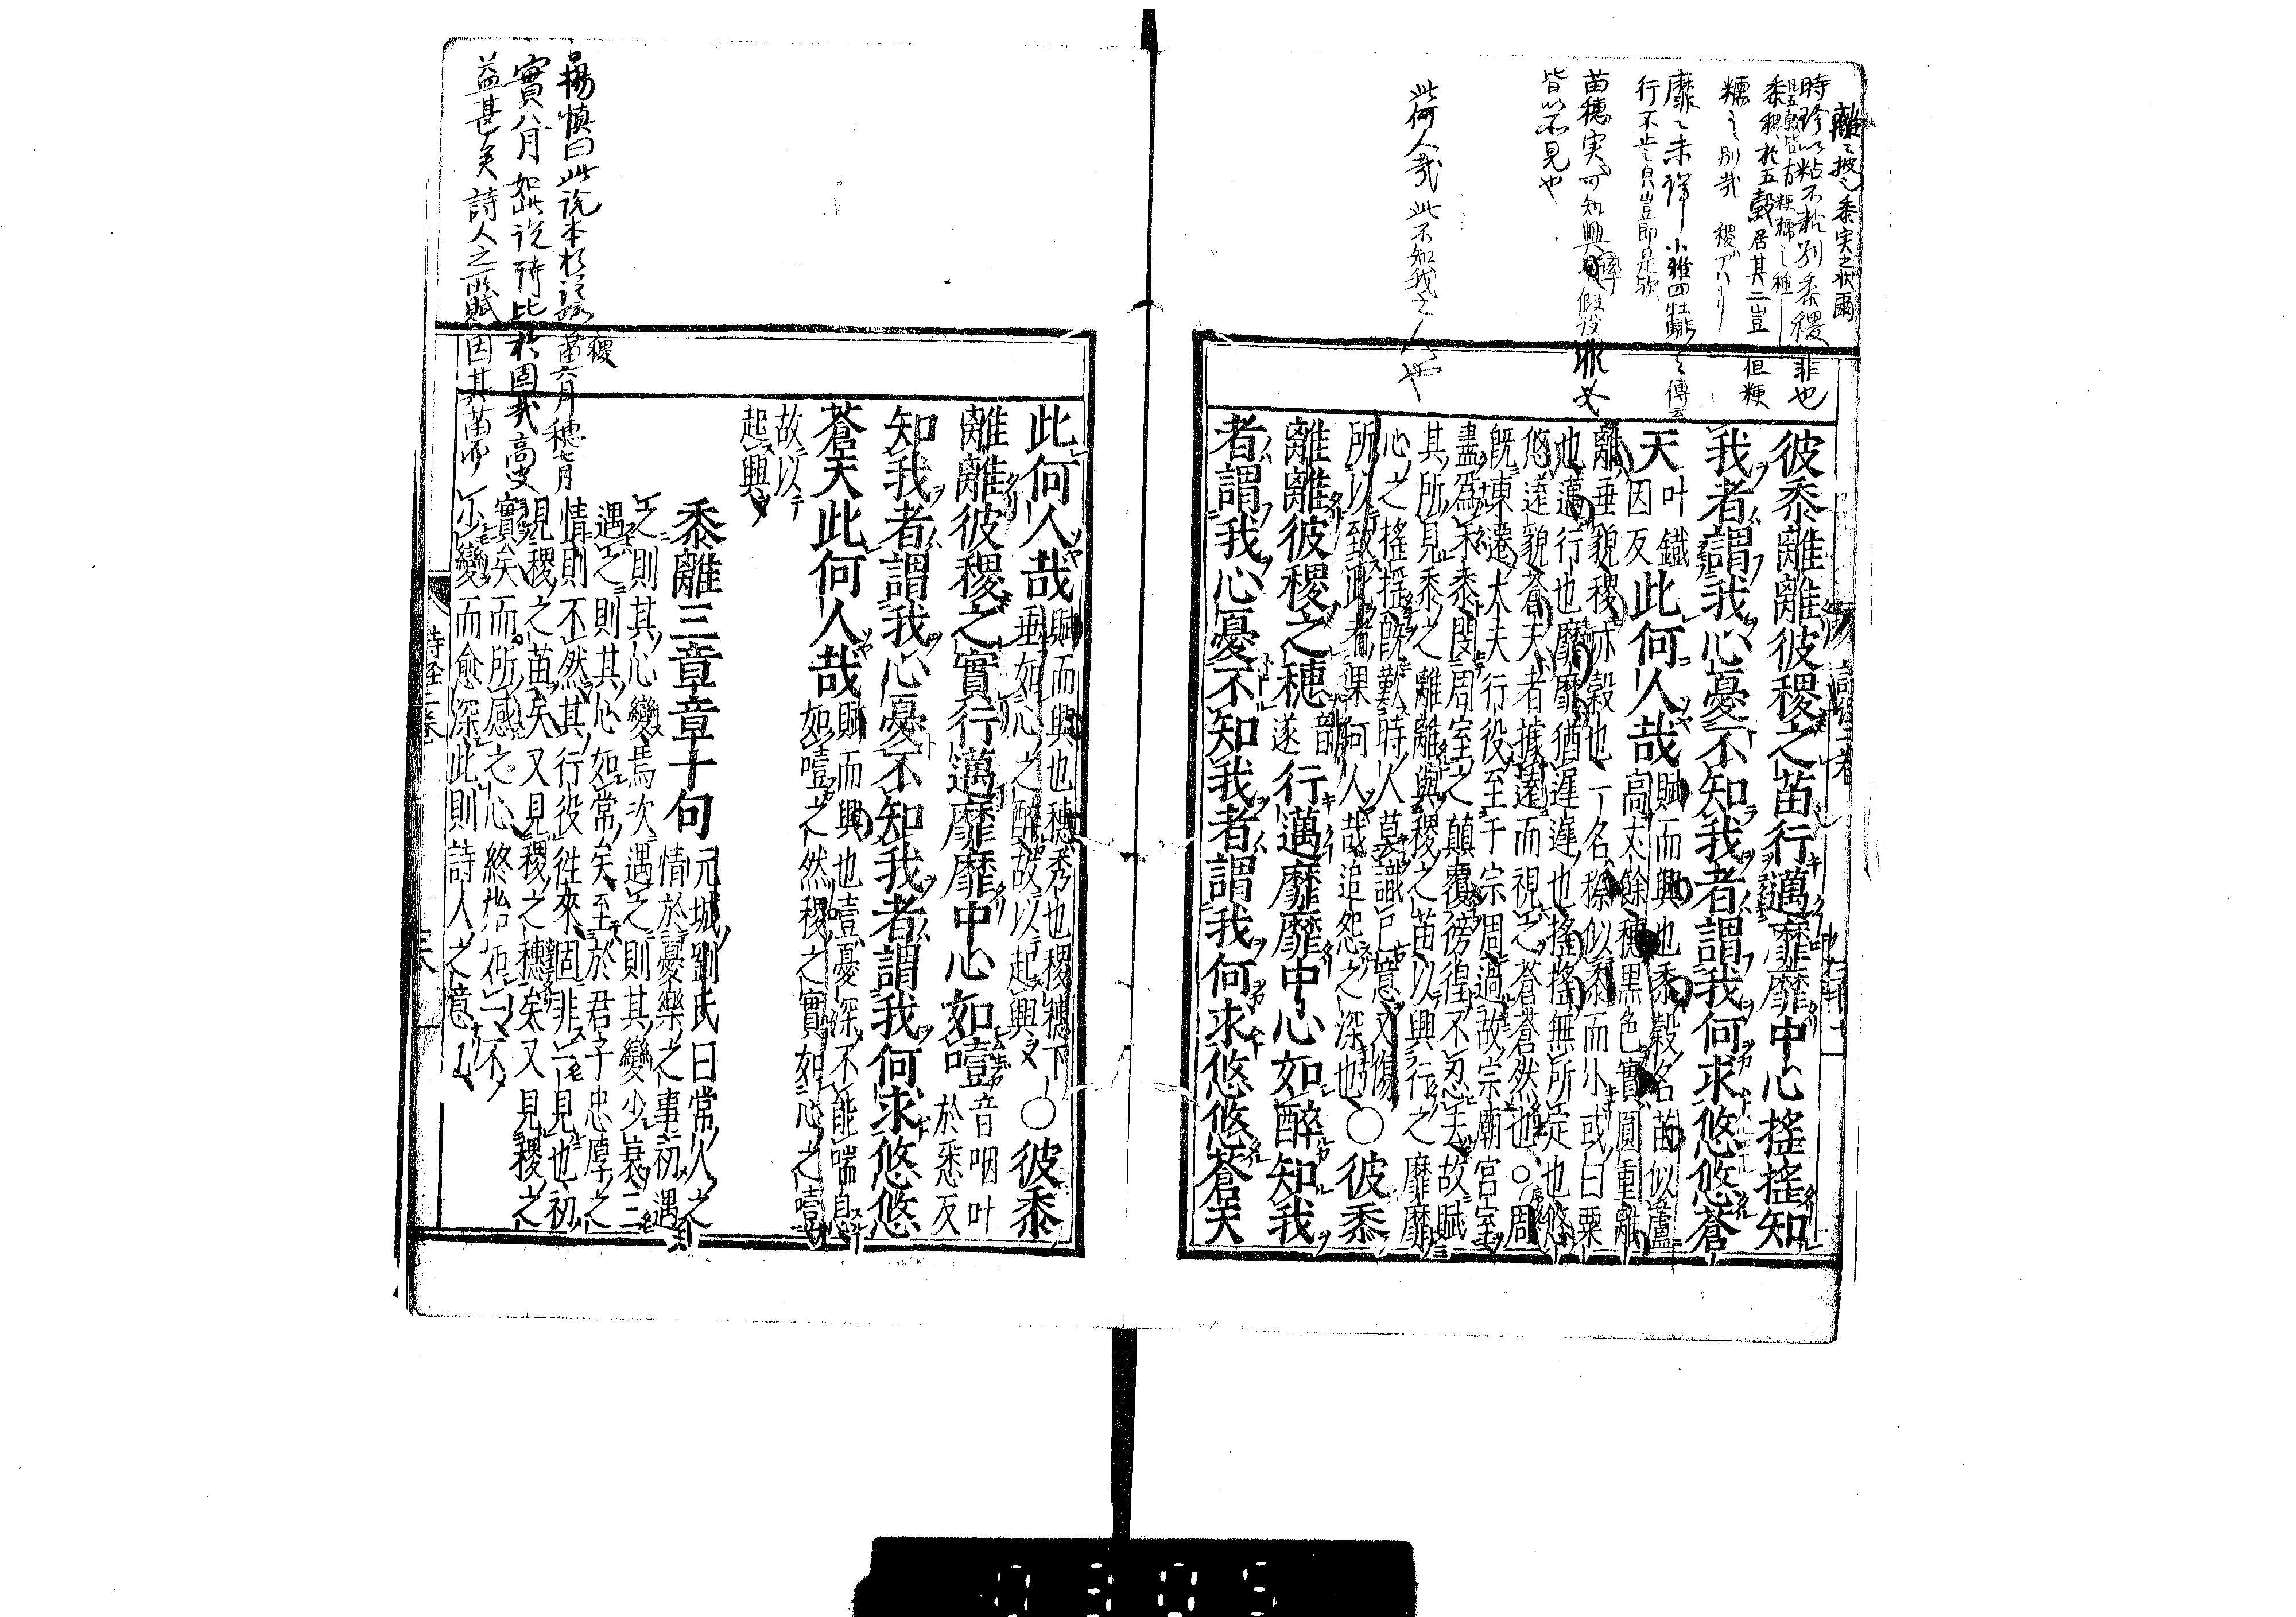 離〻披〻黍実之状爾
時珍以粘不粘別黍稷非也
凡五穀皆有粳糯之種
黍稷於五穀居其二豈但粳
糯之別哉
靡〻未詳小雅四牡騑〻傳云
行不止之皃豈即是歟
苗穗実可知興
皆以所見也
此何人哉此不知我之人也
彼黍離離彼稷之苗行邁靡靡中心搖搖知
我者謂我心憂不知我者謂我何求悠悠蒼
天叶鐵因反此何人哉賦而興也黍穀名苗似蘆
高丈餘穗黑色實圓重離
離垂貌稷亦穀也一名穄似黍而小或曰粟
也邁行也靡靡猶遲遲也搖搖無所定也悠
悠遠貌蒼天者據遠而視之蒼蒼然也○周
旣東遷大夫行役至于宗周過故宗廟宮室
盡爲禾黍閔周室之顛覆傍徨不忍去故賦
其所見黍之離離與稷之苗以興行之靡靡
心之搖搖旣歎時人莫識已意又傷
所以致此者果何人哉追怨之深也○彼黍
離離彼稷之穗音遂行邁靡靡中心如醉知我
者謂我心憂不知我者謂我何求悠悠蒼天
此何人哉賦而興也穗秀也稷穗下
垂如心之醉故以起興○彼黍
離離彼稷之實行邁靡靡中心如噎音咽叶
於悉反
知我者謂我心憂不知我者謂我何求悠悠
蒼天此何人哉賦而興也噎憂深不能喘息
如噎之然稷之實如心之噎
故以
起興
黍離三章章十句元城劉氏曰常人之
情於憂樂之事初遇
之則其心變焉次遇之則其變少衰三
遇之則其心如常矣至於君子忠厚之
情則不然其行役往來固非一見也初
見稷之苗矣又見稷之穗矣又見稷之
實矣而所感之心終始如一不
少變而愈深此則詩人之意也
楊慎曰此説本於
稷苗六月穗七月
實八月如此説詩比於固哉高叟
益甚矣詩人之所賦因其苗而